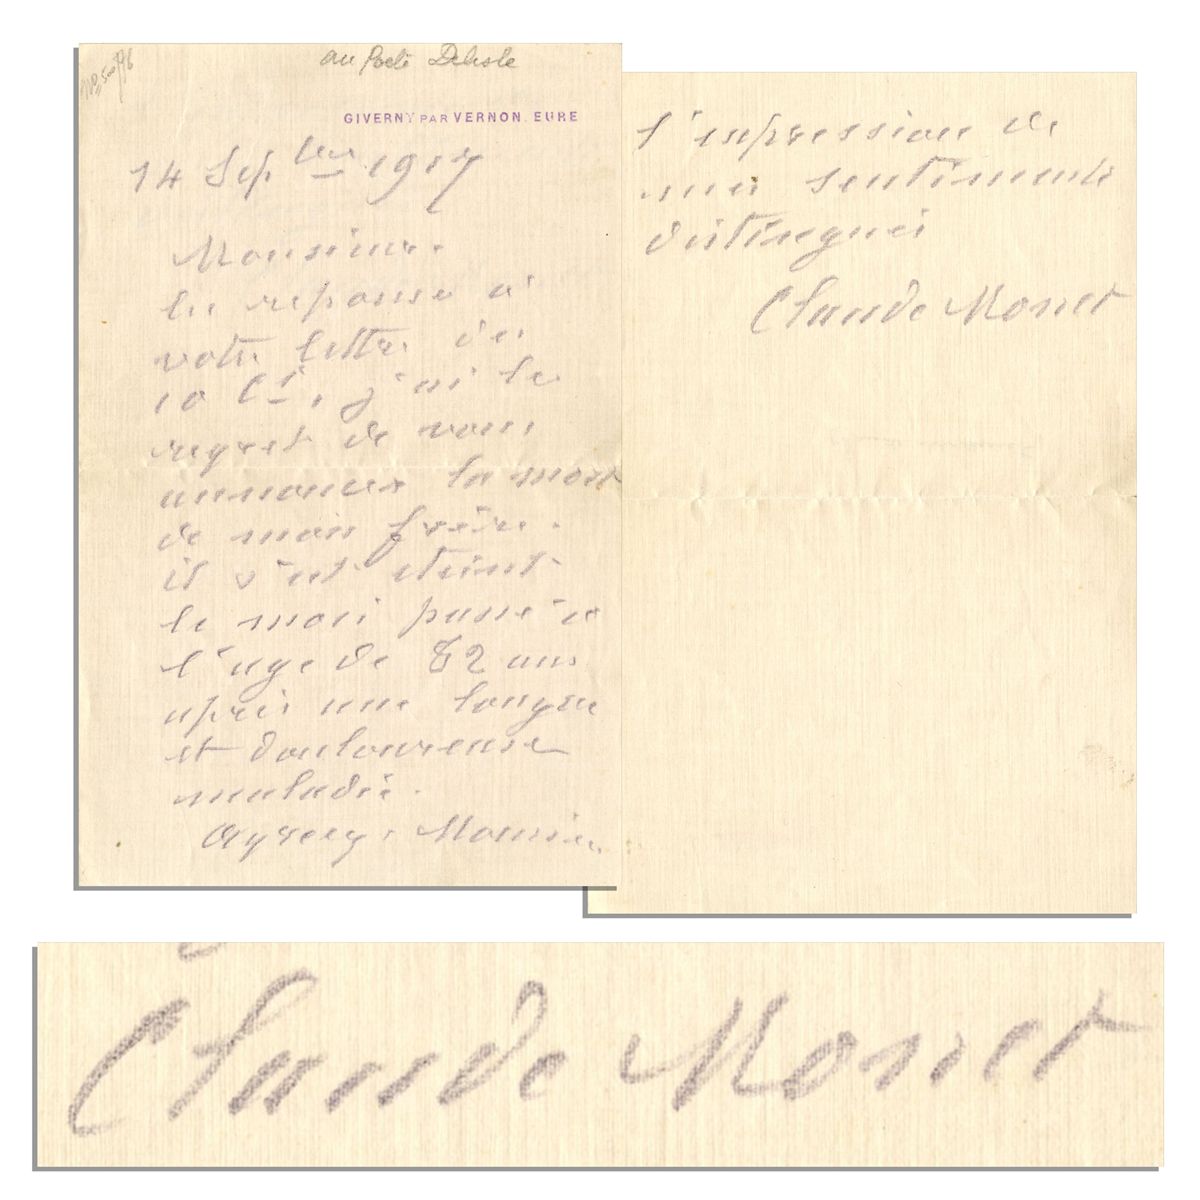 au Poète Delisle
GIVERNY PAR VERNON. EURE
14 Sep bre 1917
Monsieur.
En reponse a
votre lettre du
10 Ct, j'ai le
regret de vous
annoncer la mort
de mon frère.
il s'est éteint
le mois passé à
l'age de 82 ans
après une longue
et douloureuse
maladie.
Agréez, Monsieur
l'expression de
mes sentiments
distingués
Claude Monet
Claude Monet